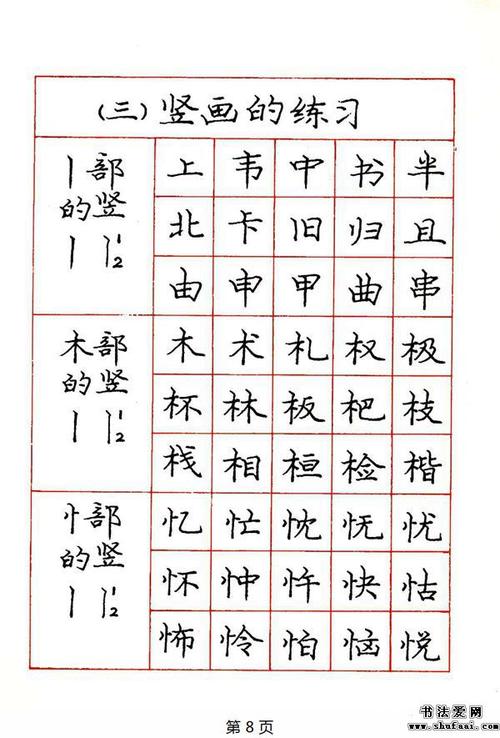 (三)竖画的练习
丨部
的竖
丨 丨1 2
上 韦 中 书 半
北 卡 旧 归 且
由 申 甲 曲 串
木部
的竖
丨 丨1 2
木 术 札 权 极
杯 林 板 杷 枝
栈 相 桓 检 楷
忄部
的竖
丨 丨1 2
忆 忙 忱 怃 忧
怀 忡 忤 快 怙
怖 怜 怕 恼 悦
第 8 页
书法爱网
www.shufaai.com